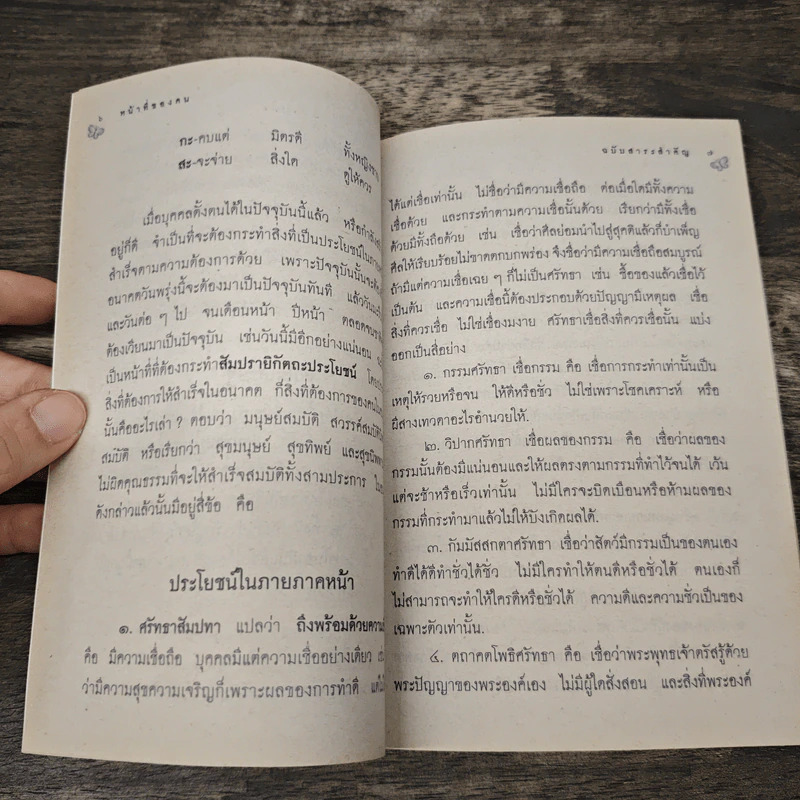 ๖ หน้าที่ของคน
กะ-คบแต่ มิตรดี ทั้งหญิงชาย
สะ-จะจ่าย สิ่งใด ดูให้ควร
เมื่อบุคคลตั้งตนได้ในปัจจุบันนี้แล้ว หรือกำลัง
อยู่ก็ดี จำเป็นที่จะต้องกระทำสิ่งที่เป็นประโยชน์ใน
สำเร็จตามความต้องการด้วย เพราะปัจจุบันนั้นจะ
อนาคตวันพรุ่งนี้จะต้องมาเป็นปัจจุบันทันที แล้ว
และวันต่อ ๆ ไป จนเดือนหน้า ปีหน้า ตลอดจน
ต้องเวียนมาเป็นปัจจุบัน เช่นวันนี้มีอีกอย่างแน่นอน
เป็นหน้าที่ที่ต้องกระทำสัมปรายิกัตถะประโยชน์
สิ่งที่ต้องการให้สำเร็จในอนาคต ก็สิ่งที่ต้องการของคน
นั้นคืออะไรเล่า ? ตอบว่า มนุษย์สมบัติ สวรรค์สมบัติ
สมบัติ หรือเรียกว่า สุขมนุษย์ สุขทิพย์ และสุข
ไม่ผิดคุณธรรมที่จะให้สำเร็จสมบัติทั้งสามประการ
ดังกล่าวแล้วนั้นมีอยู่สี่ข้อ คือ
ประโยชน์ในภายภาคหน้า
๑. ศรัทธาสัมปทา แปลว่า ถึงพร้อมด้วย
คือ มีความเชื่อถือ บุคคลมีแต่ความเชื่ออย่างเดียว
ว่ามีความสุขความเจริญก็เพราะผลของการทำดี
ฉบับสาระสำคัญ ๗
ได้แต่เชื่อเท่านั้น ไม่ชื่อว่ามีความเชื่อถือ ต่อเมื่อใดมีทั้งความ
เชื่อด้วย และกระทำตามความเชื่อนั้นด้วย เรียกว่ามีทั้งเชื่อ
ด้วยมีทั้งถือด้วย เช่น เชื่อว่าศีลย่อมนำไปสู่สุคติแล้วก็บำเพ็ญ
ศีลให้เรียบร้อยไม่ขาดตกบกพร่อง จึงชื่อว่ามีความเชื่อถือสมบูรณ์
ถ้ามีแต่ความเชื่อเฉย ๆ ก็ไม่เป็นศรัทธา เช่น ซื้อของแล้วเชื่อไว้
เป็นต้น และความเชื่อนี้ต้องประกอบด้วยปัญญามีเหตุผล เชื่อ
สิ่งที่ควรเชื่อ ไม่ใช่เชื่องมงาย ศรัทธาเชื่อสิ่งที่ควรเชื่อนั้น แบ่ง
ออกเป็นสี่อย่าง
๑. กรรมศรัทธา เชื่อกรรม คือ เชื่อการกระทำเท่านั้นเป็น
เหตุให้รวยหรือจน ให้ดีหรือชั่ว ไม่ใช่เพราะโชคเคราะห์ หรือ
ผีสางเทวดาอะไรอำนวยให้.
๒. วิปากศรัทธา เชื่อผลของกรรม คือ เชื่อว่าผลของ
กรรมนั้นต้องมีแน่นอนและให้ผลตรงตามกรรมที่ทำไว้จนได้ เว้น
แต่จะช้าหรือเร็วเท่านั้น ไม่มีใครจะบิดเบือนหรือห้ามผลของ
กรรมที่กระทำมาแล้วไม่ให้บังเกิดผลได้.
๓. กัมมัสสกตาศรัทธา เชื่อว่าสัตว์มีกรรมเป็นของตนเอง
ทำดีได้ดีทำชั่วได้ชั่ว ไม่มีใครทำให้ตนดีหรือชั่วได้ ตนเองก็
ไม่สามารถจะทำให้ใครดีหรือชั่วได้ ความดีและความชั่วเป็นของ
เฉพาะตัวเท่านั้น.
๔. ตถาคตโพธิศรัทธา คือ เชื่อว่าพระพุทธเจ้าตรัสรู้ด้วย
พระปัญญาของพระองค์เอง ไม่มีผู้ใดสั่งสอน และสิ่งที่พระองค์